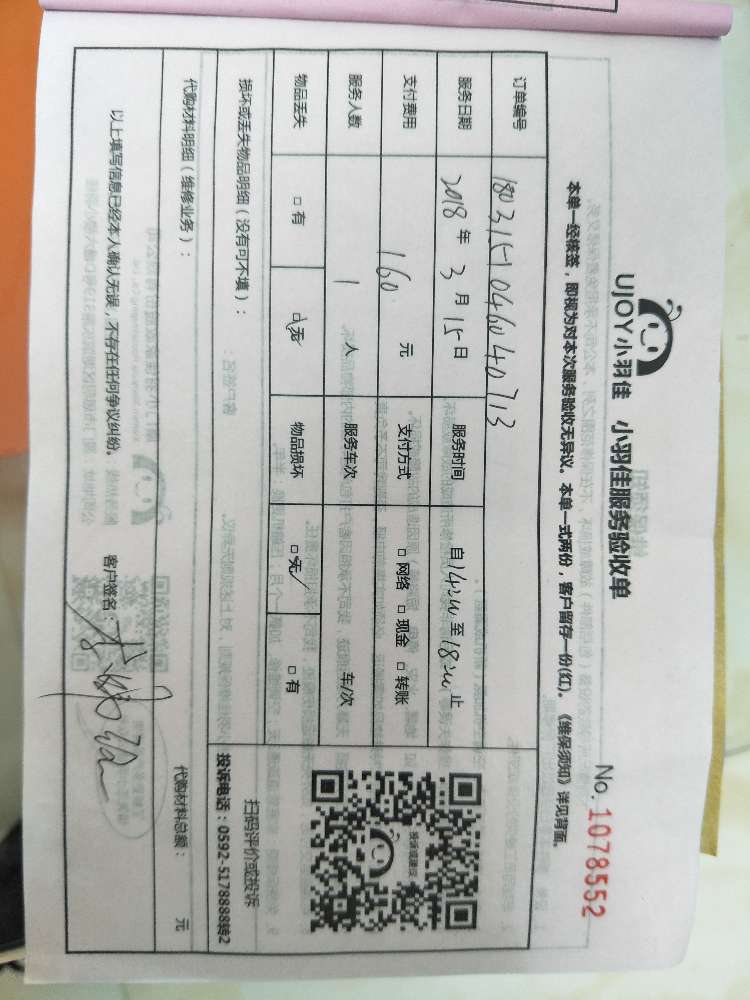 UJOY小羽佳 小羽佳服务验收单
No. 1078552
本单一经核签，即视为对本次服务验收无异议。本单一式两份，客户留存一份(红)。《维保须知》详见背面。
订单编号
服务日期 2018年3月15日 服务时间 自14:00至18:00止
支付费用 160 元 支付方式 □网络 □现金 □转账
服务人数 1 人 服务车次 车/次
物品丢失 □有 □无 物品损坏 □无 □有
损坏或丢失物品明细（没有可不填）：
投诉或建议
扫码评价或投诉
投诉电话：0592-5178888转2
代购材料明细（维修业务）： 代购材料总额： 元
以上填写信息已经本人确认无误，不存在任何争议纠纷。 客户签名：